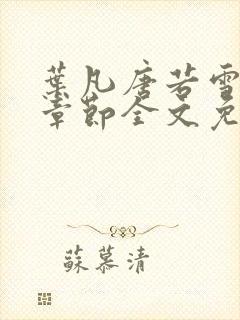 葉凡唐若雪
章節全文免
蘇慕清